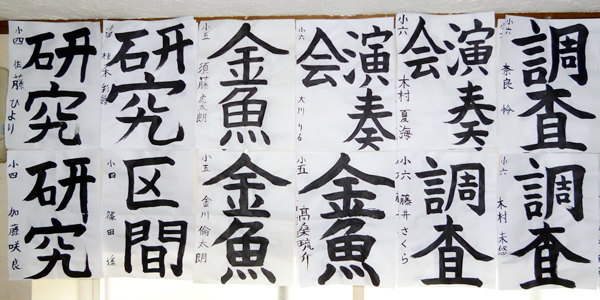 研究
小四 佐藤ひより
研究
金魚
小三 須藤虎太朗
演奏
会
小六 大川りる
演奏
会
小六 木村夏海
調査
小六 奈良怜
研究
小四 加藤咲良
区間
小四 篠田遥
金魚
小五 金川倫太朗
金魚
小五 高桑琉介
調査
小六 藤井さくら
調査
小六 木村未悠